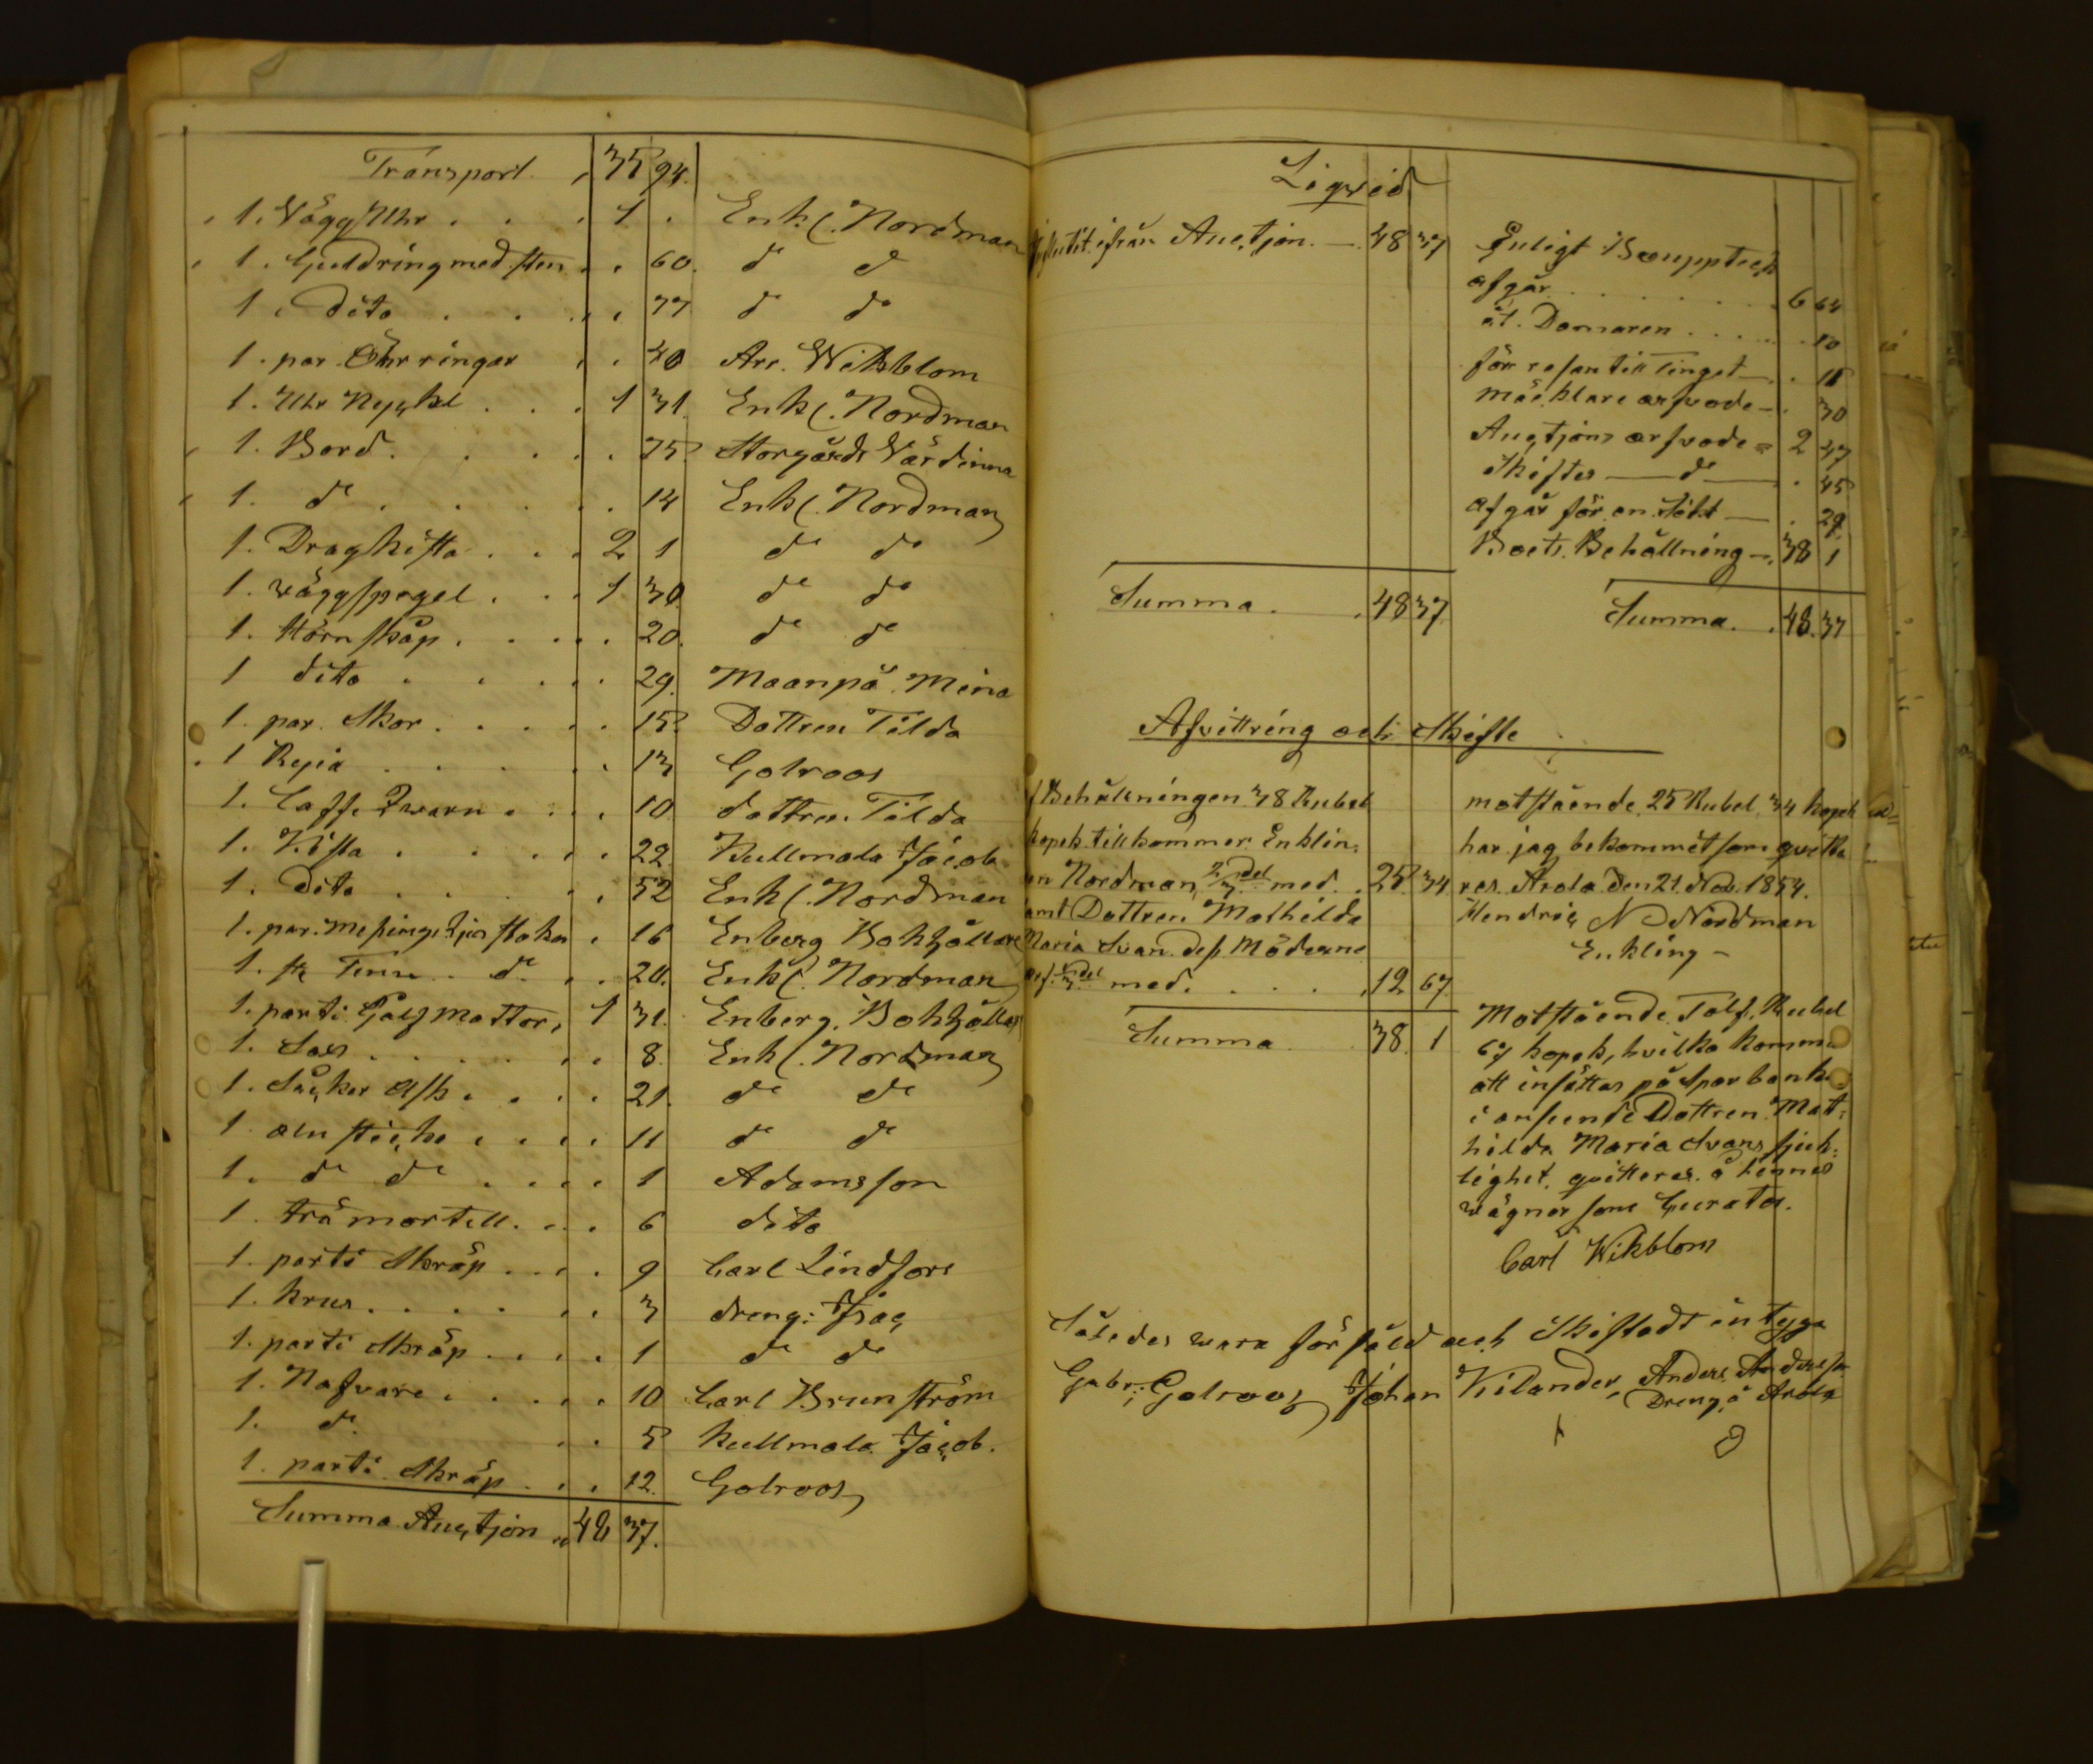 Transport 35 94.
1. Vägg Uhr . . . 1 . Enkl. Nordman
1. Guldring med sten . . 60. do do
1. dito . . . . 77 do do
1. par Öhrringar . . 40 Arr. Wikblom
1. Uhr Nyckel . . . 1 31. Enkl. Nordman
1. Bord. . . . . 75. Storgårds Värdinna
1. do . . . . . 14 Enkl. Nordman
1. Dragkista . . . 2 1 do do
1. väggspegel . . . 1 30. do do
1. Hörnskåp . . . . 20. do do
1 dito . . . . . 29. Maanpä Mina
1. par. Skor . . . . . 15. Dottren Tilda
1 . . . . . 13 Golroos
1. Caffe Qwarn . . . 10. dottren Tilda
1. Kista . . . . . 22. Kullmala Jacob
1. dito . . . . . 52 Enkl. Nordman
1. par. Mesings Ljusstakar . 16 Enberg Bokhållare
1. st Tenn . do . . 20. Enkl. Nordman
1. parti Golfmattor, 1 31. Enberg. Bokhållar
1. Sax . . . . . . 8. Enkl. Nordman
1. Såcker Ask . . . . 21. do do
1 alnsticka . . . . 11 do do
1. do do . . . . 1 Adamsson
1. trämortell. . . . 6 dito
1. parti Skräp . . . . 9 Carl Lindfors
1. krus . . . . . . 3 dreng: Isac
1. parti Skräp . . . . 1 do do
1. Nafvare . . . . . 10 Carl Brunström
1. do . . 5 kullmala Jacob.
1. parti Skräp . . . 12. Golroos
Summa Auctjon 48 37.
Liqvid
Influtit ifrån Auctjon. — 48 37
Summa . . 48 37
Enligt Bouppteck
afgår . . . . . . . 6 64
åt. Domaren . . . . 10
för resan till Tinget — . 11
mäcklare arfvode — . 30
Auctjons arfvode = 2 47
Skiftes — do — . 45
afgår för en — . 29.
Boets Behållning — 38 1
Summa . . 48. 37
Afvittring och Skifte
f Behålningen 38 Rubel
kopek tillkommer Enklin:
en Nordman 2/3 del med . 25 34
samt Dottren Mathilda
Maria Svan. dess Möderne
arf. 1/3 del med . . . . 12 67
Summa 38. 1
motstående 25 Rubel, 34 kopek
har jag bekommit som qvitte
res. Arola den 21. Nov. 1854.
Hendric N Nordman
Enkling —
Motstående Tolf. Rubel
67 kopek, hvilka komma
att insättas på Sparbanken
i anseende Dottren Mat:
hilda Maria Svans sjuk:
lighet, qvitteras å hennes
wägnar som Curator.
Carl Wikblom
Således vara försåld och Skiftadt intyga
Gabr: Golroos Johan Kilander, Anders Andersson
Dreng å Arola